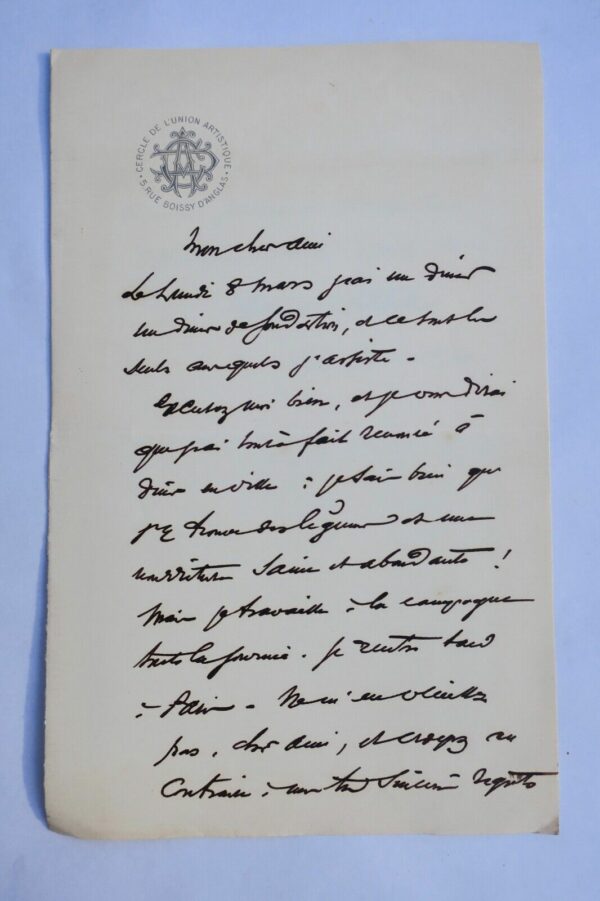 CERCLE DE L'UNION ARTISTIQUE
5 RUE BOISSY D'ANGLAS
Mon cher ami
Le Lundi 8 Mars j'ai un dîner
un diner de fondation, et ce sont les
seuls auxquels j'assiste -
Excusez moi bien, et je vous dirai
que j'ai tout à fait renoncé à
dîner en ville : je sais bien que
j'y trouve des légumes et une
nourriture saine et abondante !
Mais je travaille à la campagne
toute la journée. Je rentre tard
à Paris - Ne m'en veuillez
pas, cher ami, et croyez au
Contraire à mon très sincère regrets